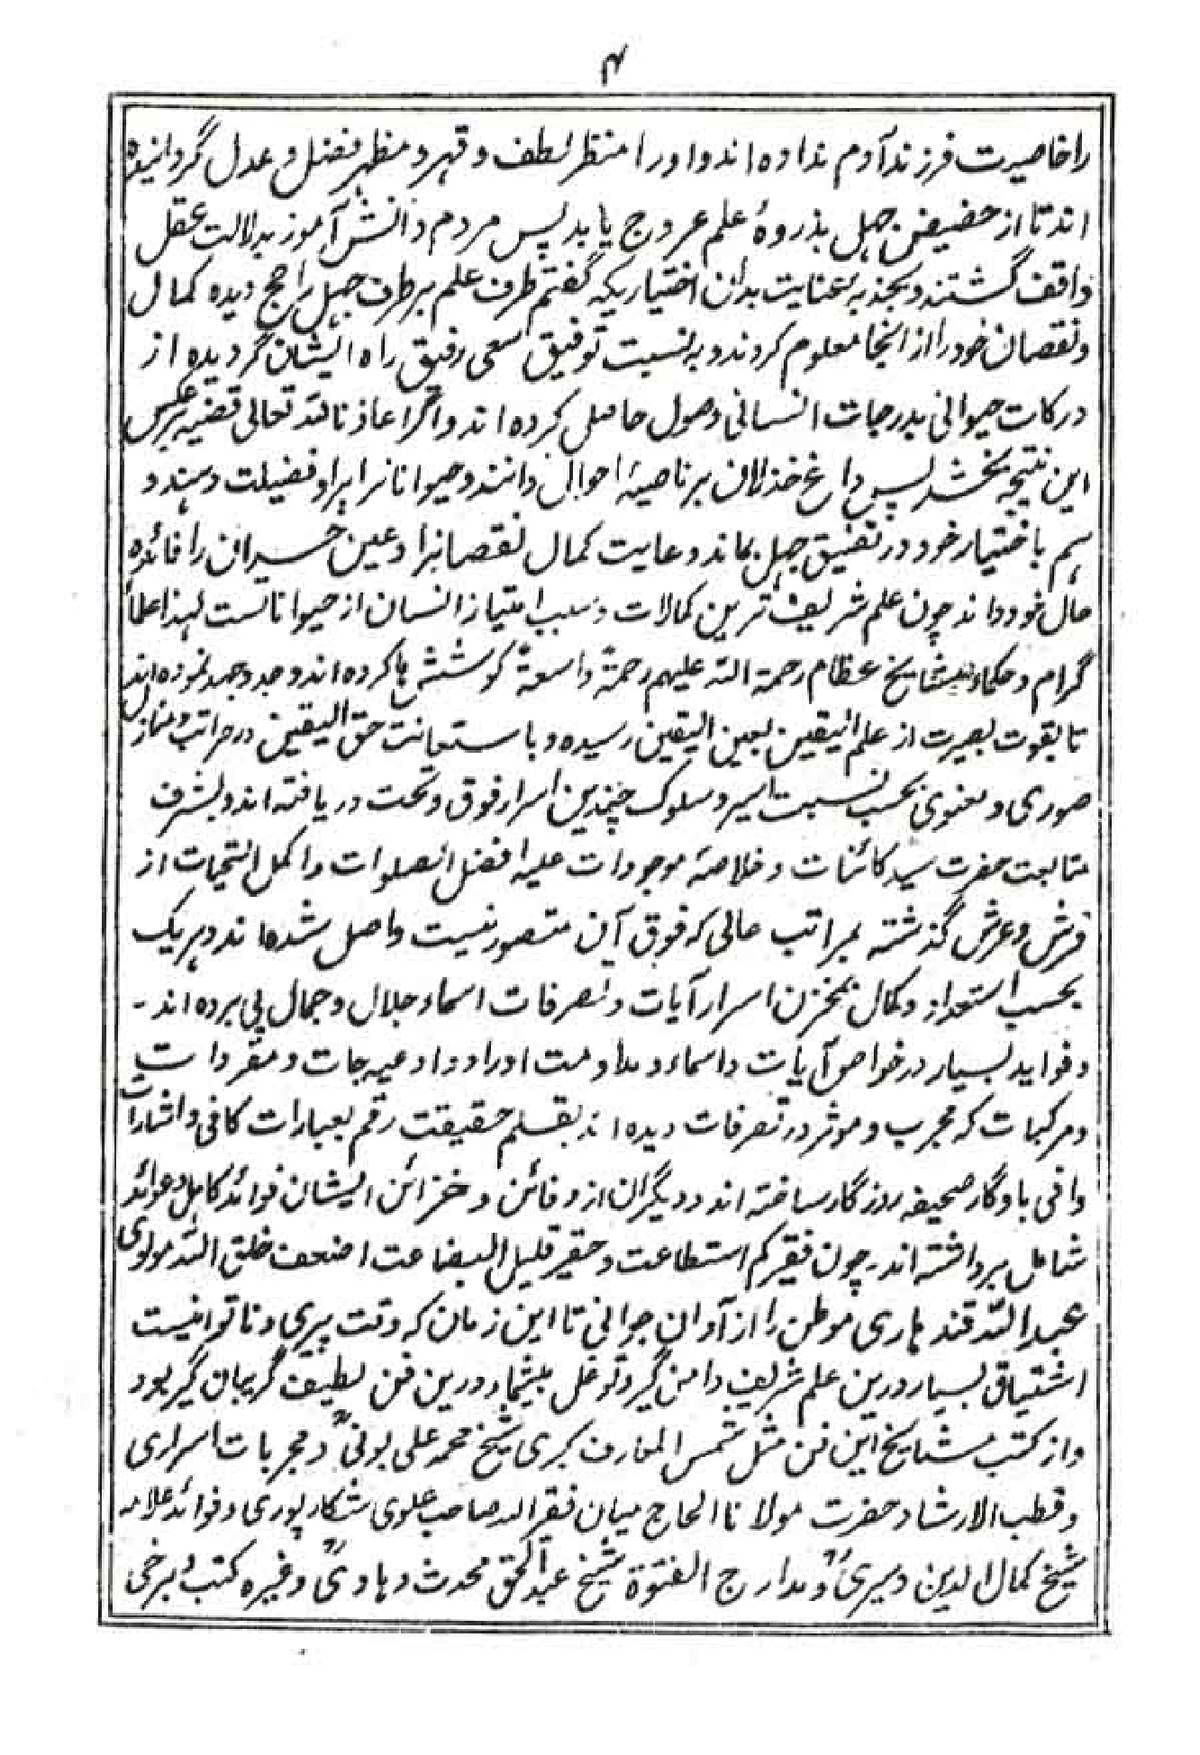 ۴
را خاصیت فرزند آدم نداده اند و او را منتظر لطف و قهر و مظهر فضل و عدل گردانیده
اند تا از حضیض جهل بذروهٔ علم عروج یابد پس مردم دانش آموز بدلالت عقل
واقف گشتند و بجذبهٔ عنایت بدان اختیاریکه گفتم طرف علم بر طرف جهل راجح دیده کمال
و نقصان خود را از انجا معلوم کردند و به نسبت توفیق سعی رفیق راه ایشان گردیده از
درکات حیوانی بدرجات انسانی وصول حاصل کرده اند و اگر اعاذنا الله تعالی قضیه برعکس
این نتیجه بخشد پس داغ خذلان بر ناصیهٔ احوال دانند و حیوانانرا برو فضیلت دهند و
هم باختیار خود در تضییق جهل بماند و غایت کمال نقصانرا و عین خسران را فائده
حال خود داند چون علم شریف ترین کمالات و سبب امتیاز انسان از حیوانانست لهذا علماء
گرام و حکماء مشایخ عظام رحمة الله علیهم رحمة واسعة کوشش ها کرده اند و جد و جهد نموده اند
تا بقوت بصیرت از علم الیقین بعین الیقین رسیده و با ستعانت حق الیقین در مراتب و منازل
صوری و معنوی بحسب نسبت سیر و سلوک چندین اسرار فوق و تحت دریافته اند و بشرف
متابعت حضرت سید کائنات و خلاصهٔ موجودات علیه افضل الصلوات و اکمل التحیات از
فرش و عرش گذشته بمراتب عالی که فوق آن متصور نیست واصل شده اند و هر یک
بحسب استعداد و کمال بمخزن اسرار آیات و تصرفات اسماء جلال و جمال پی برده اند ۔
و فواید بسیار در خواص آیات و اسماء و مداومت اوراد و ادعیه جات و مفردات
و مرکبات که مجرب و موثر در تصرفات دیده اند بقلم حقیقت رقم بعبارات کافی و اشارات
وافی یادگار صحیفه روزگار ساخته اند و دیگران از دفائن و خزائن ایشان فوائد کامل و عوائد
شامل برداشته اند ۔ چون فقیر کم استطاعت و حقیر قلیل البضاعت اضعف خلق الله مولوی
عبد الله قندهاری موطن را از آوان جوانی تا این زمان که وقت پیری و ناتوانیست
اشتیاق بسیار درین علم شریف دامن گیر و توغل بیشمار درین فن لطیف گریبان گیر بود
و از کتب مشایخ این فن مثل شمس المعارف کبری شیخ محمد علی بونیؒ و مجربات اسراری
و قطب الارشاد حضرت مولانا الحاج میان فقر الله صاحب علوی شکارپوری و فوائد علامه
شیخ کمال الدین دمیریؒ و مدارج الفتوة شیخ عبد الحق محدث دهلویؒ و غیره کتب برخی